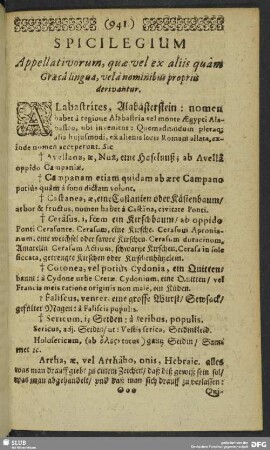 (941.)
SPICILEGIUM
Appellativorum, quæ vel ex aliis quàm
Græcâ lingua, vel à nominibus propriis
derivantur.
ALabastrites, Alabasterstein: nomen
habet à regione Alabastria vel monte Ægypti Ala-
bastro, ubi invenitur: Quemadmodum pleraq;
alia hujusmodi, ex alienis locis Romam allata, ex-
inde nomen acceperunt. Sic
† Avellana, æ, Nux, eine Haselnuß, ab Avellâ
oppido Campaniæ.
† Campanam etiam quidam ab ære Campano
potius quàm à sono dictam volunt.
† Castanea, æ, eine Castanien oder Kästenbaum/
arbor & fructus, nomen habet à Castâna, civitate Ponti.
† Cerâsus, i, fœm. ein Kirschbaum/ ab oppido
Ponti Cerasunte. Cerasum, eine Kirsche. Cerasum Apronia-
num, eine weichsel oder sawre Kirschen. Cerasum duracinum,
Amarellen. Cerasum Actium, schwartze Kirschen. Cerasa in sole
siccata, getreugte Kirschen oder
† Cotonea, vel potiùs Cydonia, ein Quitten-
baum: à Cydone urbe Cretæ. Cydonium, eine Quitten/ vel
Francis meis ratione originis non male, ein Küden.
† Faliscus, venter, eine grosse Wurst/ Sewsack/
gefülter Magen: à Faliscis populis.
† Sericum, i, Seiden: à Seribus, populis.
Sericus, adj. Seiden/ ut: Vestis serica, Seidenkleid.
Holosericum, (ab ὅλος, totus) gantz Seiden/ Sam-
met &c.
Arrha, æ, vel Arrhâbo, onis, Hebraic. alles
was man drauff giebt zu einem Zeichen/ daß diß gewiß sein sol/
was man abgehandelt/ und daß man sich drauff zu verlassen:
SLUB